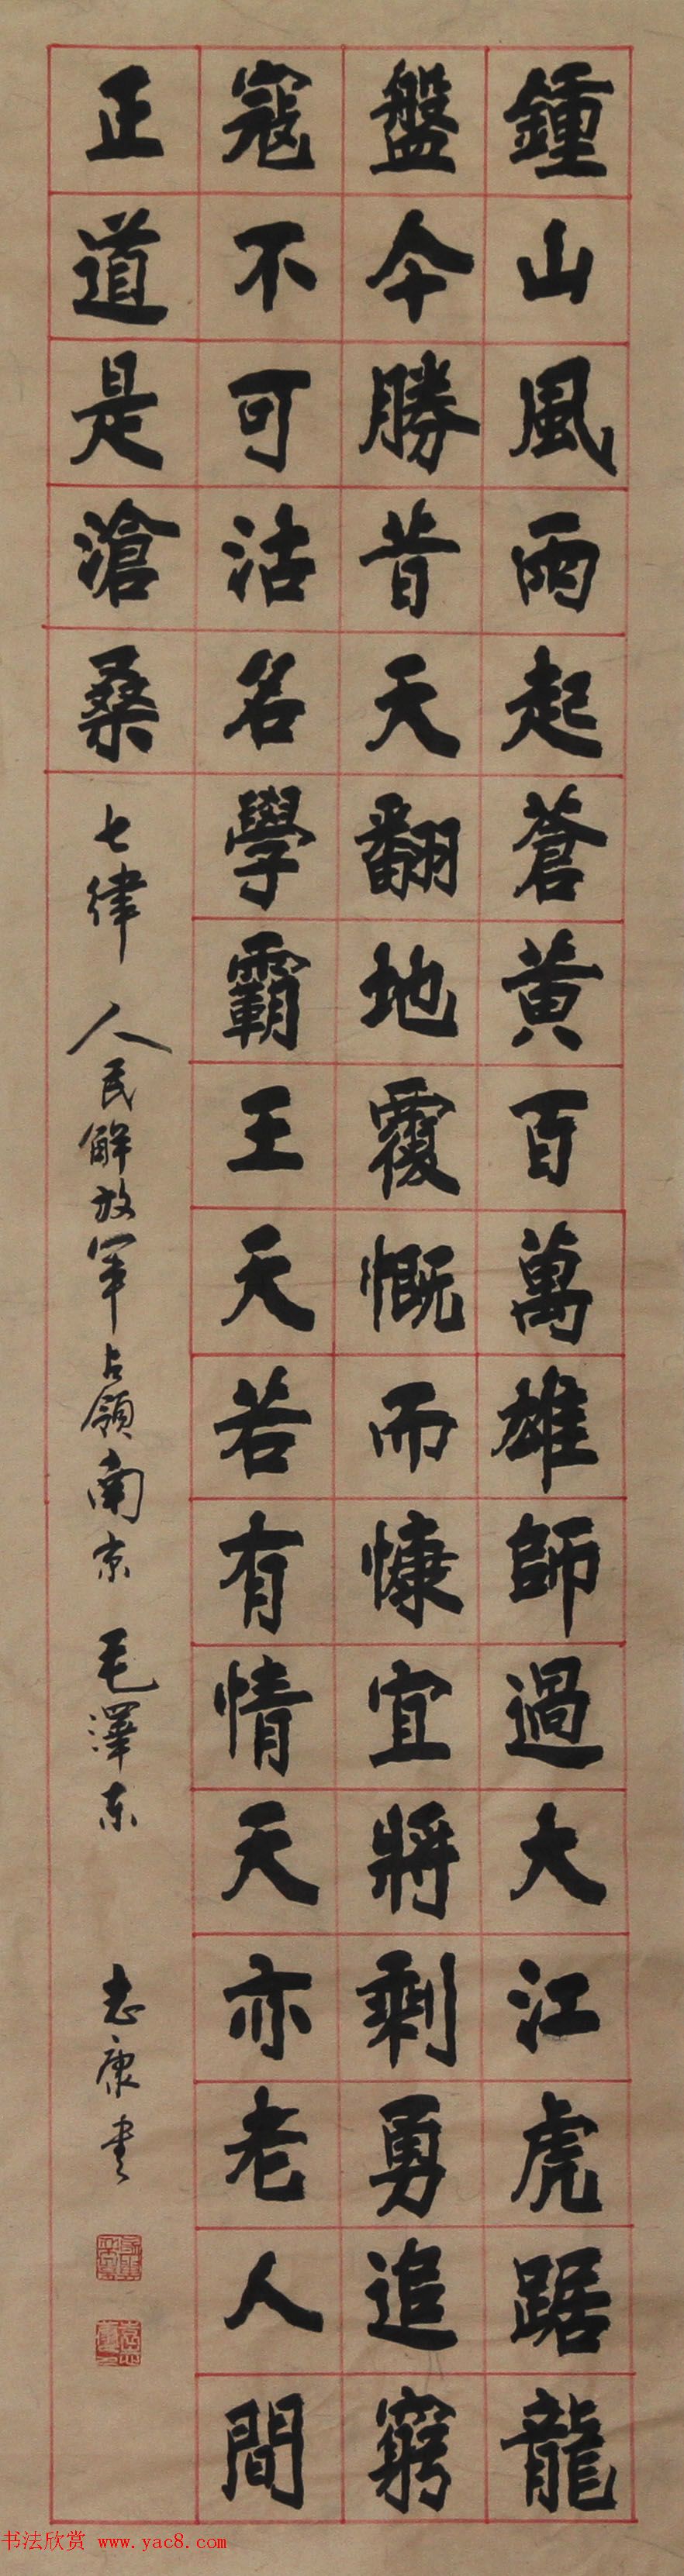 鍾山風雨起蒼黃百萬雄師過大江虎踞龍
盤今勝昔天翻地覆慨而慷宜將剩勇追窮
寇不可沽名學霸王天若有情天亦老人間
正道是滄桑
七律 人民解放军占領南京 毛澤东 志康书
书法欣赏 www.yac8.com